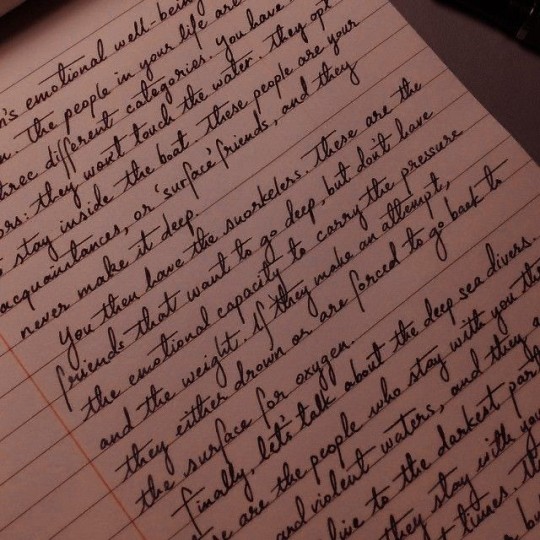 emotional well-being
The people in your life are
three different categories. You have
they won't touch the water. They opt
stay inside the boat. These people are your
acquaintances, or 'surface' friends, and they
never make it deep.
You then have the snorkelers. These are the
friends that want to go deep, but don't have
the emotional capacity to carry the pressure
and the weight. If they make an attempt,
they either drown or are forced to go back to
the surface for oxygen.
Finally, let's talk about the deep sea divers.
are the people who stay with you
and violent waters, and they
to the darkest
they stay with you
times.